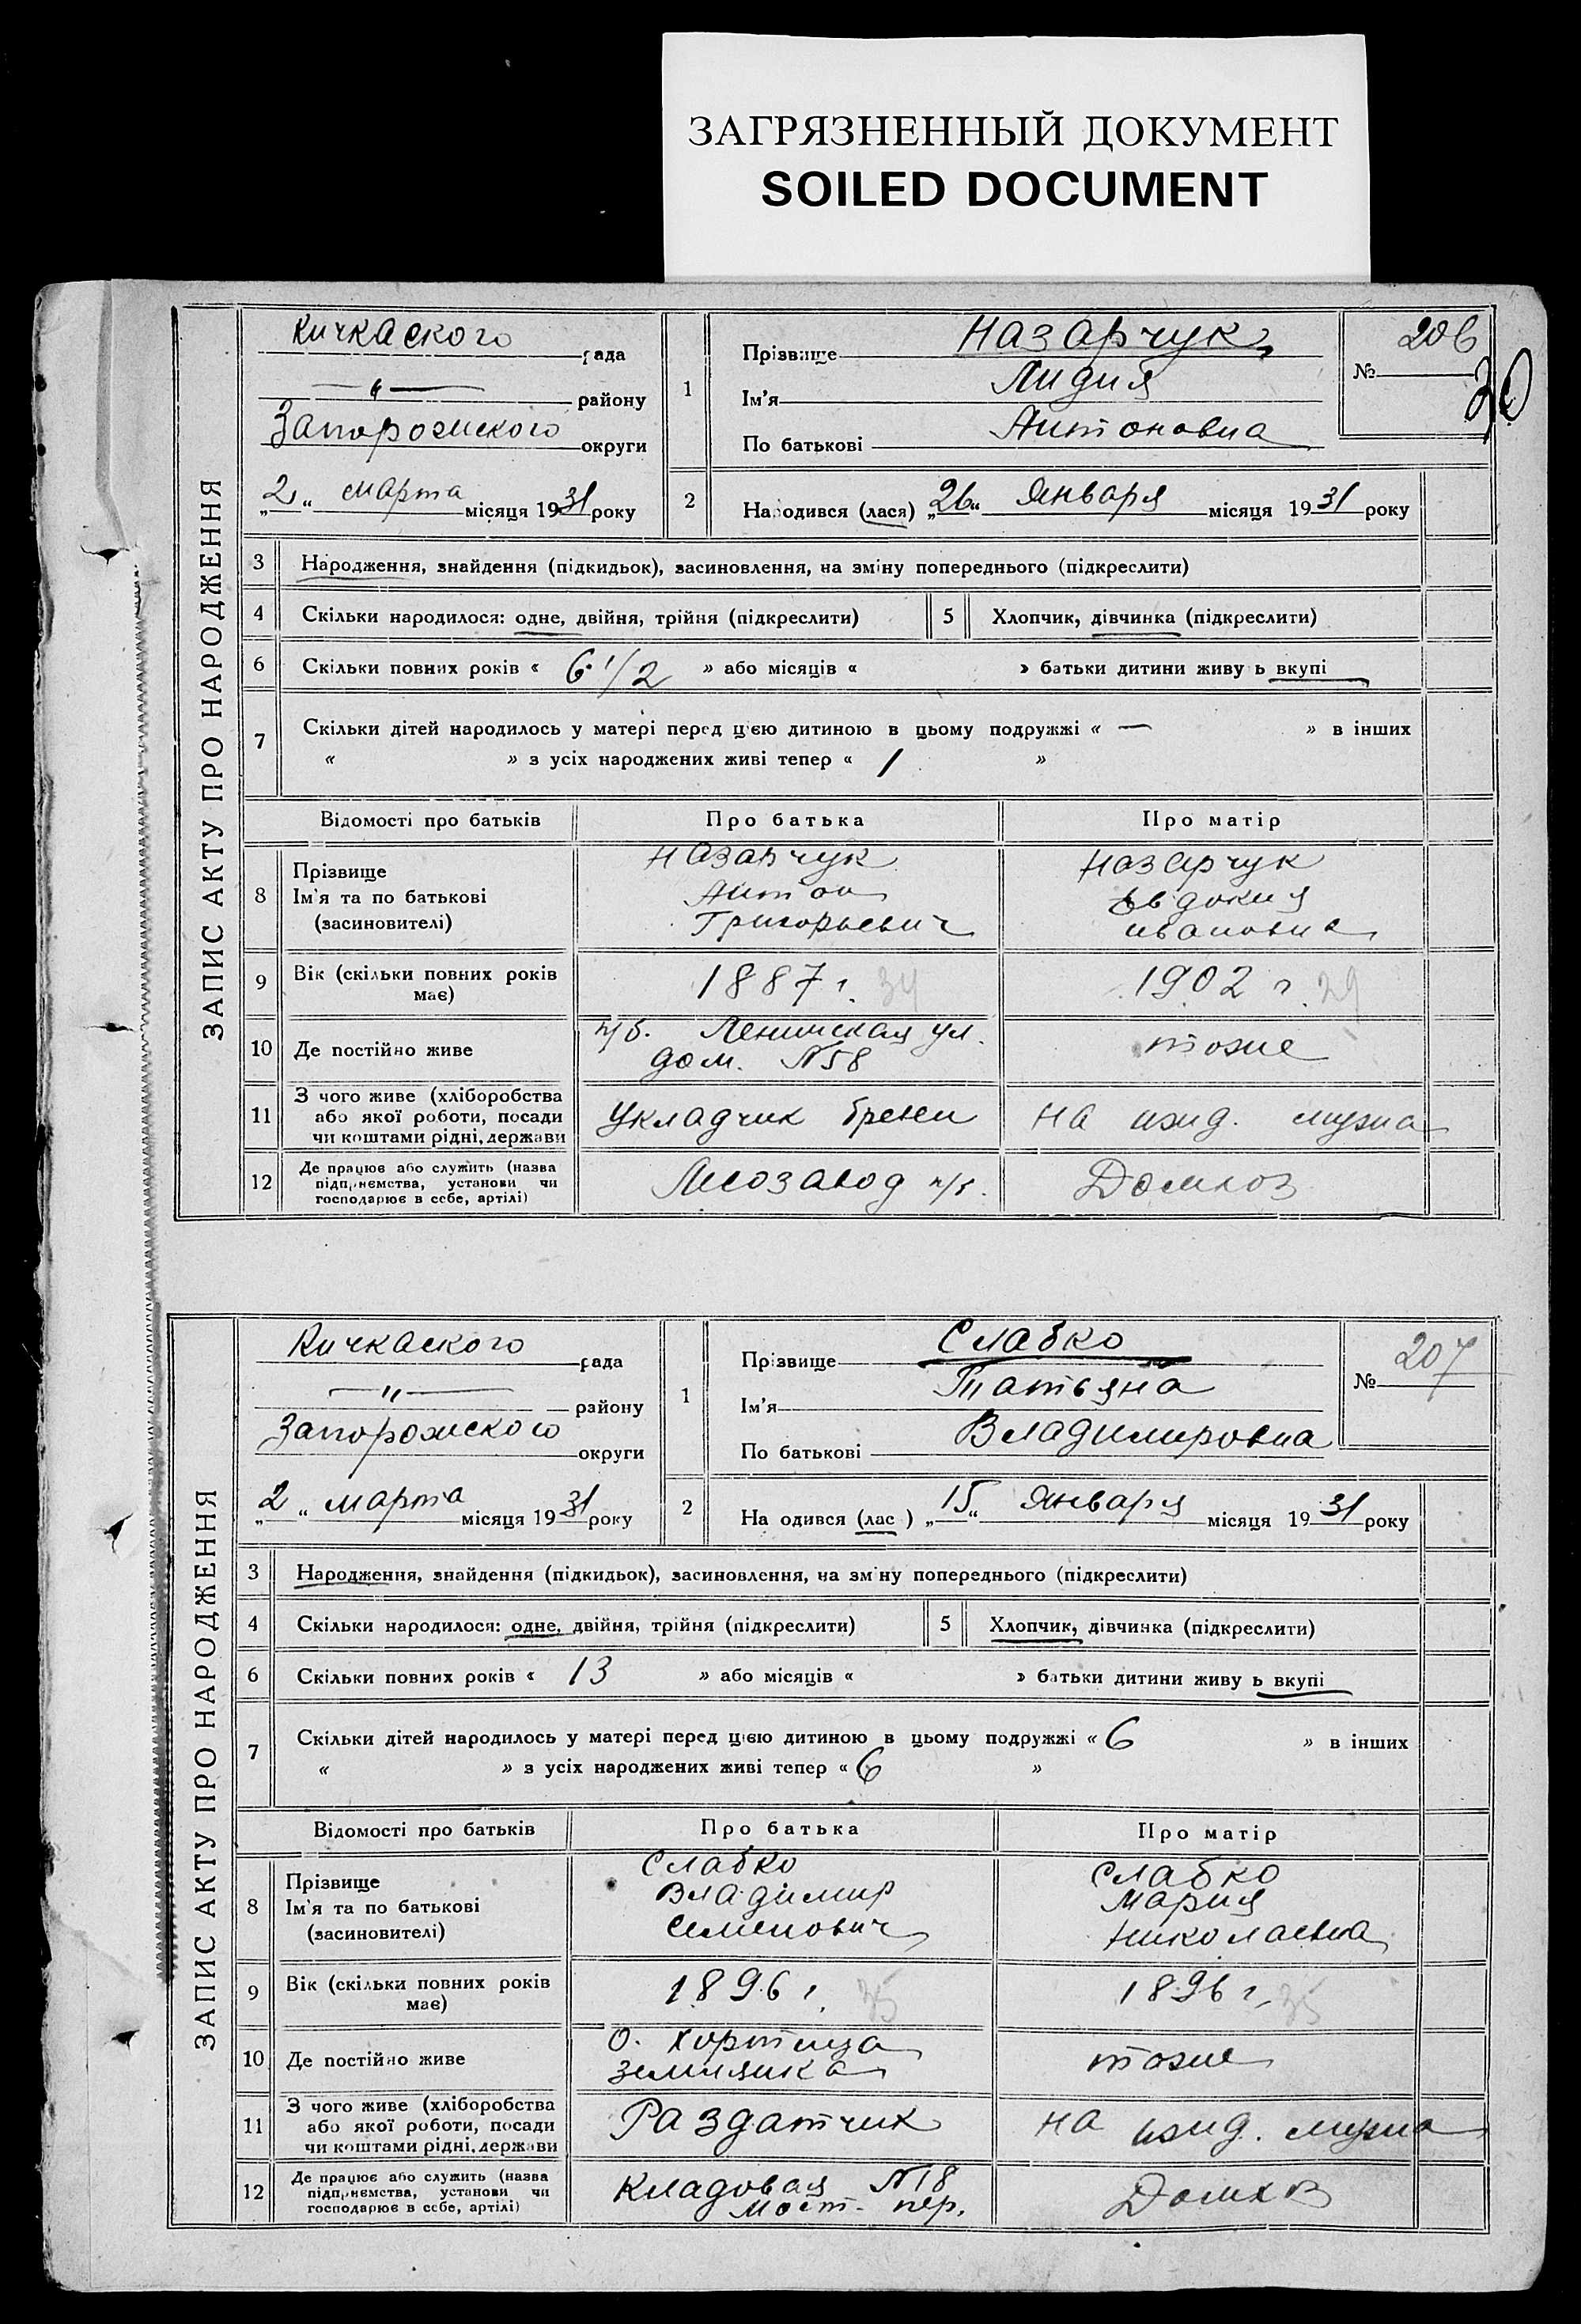 ЗАГРЯЗНЕННЫЙ ДОКУМЕНТ
SOILED DOCUMENT
ЗАПИС АКТУ ПРО НАРОДЖЕННЯ
Кичкаского рада
—"— району
Запорожского округи
„2" марта місяця 1931 року
1
Прізвище Назарчук
Ім'я Лидия
По батькові Антоновна
№ 206
30
2 Народився (лася) „26" Января місяця 1931 року
3 Народження, знайдення (підкидьок), засиновлення, на зміну попереднього (підкреслити)
4 Скільки народилося: одне, двійня, трійня (підкреслити) 5 Хлопчик, дівчинка (підкреслити)
6 Скільки повних років « 6 1/2 » або місяців « » батьки дитини живу ь вкупі
7 Скільки дітей народилось у матері перед цією дитиною в цьому подружжі « — » в інших
« » з усіх народжених живі тепер « 1 »
Відомості про батьків Про батька Про матір
8 Прізвище
Ім'я та по батькові
(засиновителі)
Назарчук
Антон
Григорьевич
Назарчук
Евдокия
Ивановна
9 Вік (скільки повних років
має)
1887 г. 34
1902 г. 29
10 Де постійно живе
п/б. Ленинская ул.
дом. №58
тоже
11 З чого живе (хліборобства
або якої роботи, посади
чи коштами рідні, держави
Укладчик
на ижд. мужа
12 Де працює або служить (назва
підприємства, установи чи
господарює в себе, артілі)
Лесозавод
Домхоз
ЗАПИС АКТУ ПРО НАРОДЖЕННЯ
Кичкаского рада
—"— району
Запорожского округи
„2" марта місяця 1931 року
1
Прізвище Слабко
Ім'я Татьяна
По батькові Владимировна
№ 207
2 На одився (лас ) „15" Января місяця 1931 року
3 Народження, знайдення (підкидьок), засиновлення, на зм ну попереднього (підкреслити)
4 Скільки народилося: одне, двійня, трійня (підкреслити) 5 Хлопчик, дівчинка (підкреслити)
6 Скільки повних років « 13 » або місяців « » батьки дитини живу ь вкупі
7 Скільки дітей народилось у матері перед цією дитиною в цьому подружжі « 6 » в інших
« » з усіх народжених живі тепер « 6 »
Відомості про батьків Про батька Про матір
8 Прізвище
Ім'я та по батькові
(засиновителі)
Слабко
Владимир
Семенович
Слабко
Мария
Николаевна
9 Вік (скільки повних років
має)
1896 г. 35
1896 г. 35
10 Де постійно живе
О. Хортица
землянка
тоже
11 З чого живе (хліборобства
або якої роботи, посади
чи коштами рідні, держави
Раздатчик
на ижд. мужа
12 Де працює або служить (назва
підприємства, установи чи
господарює в себе, артілі)
Кладовая №18
Мост. пер.
Домхоз